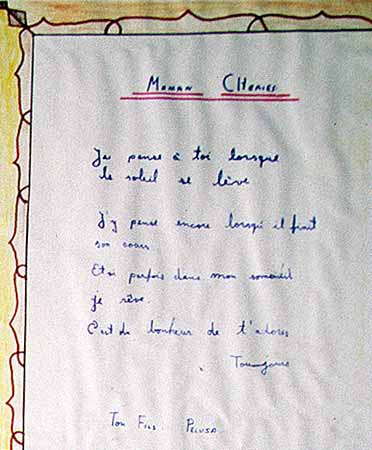 Maman CHeries
Je pense à toi lorsque
le soleil se lève
J'y pense encore lorsqu'il finit
son cours
Et si parfois dans mon someil
je rêve
C'est du bonheur de t'adorer
Toujours
Ton Fils Pelusa